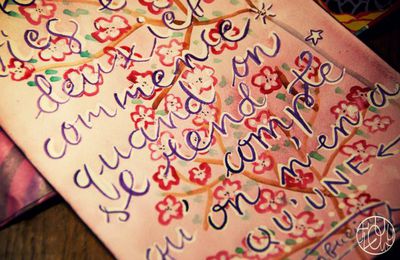 ies e
deuxiè
commence
quand on
se rend compte
qu'on n'en a
QU'UNE ←